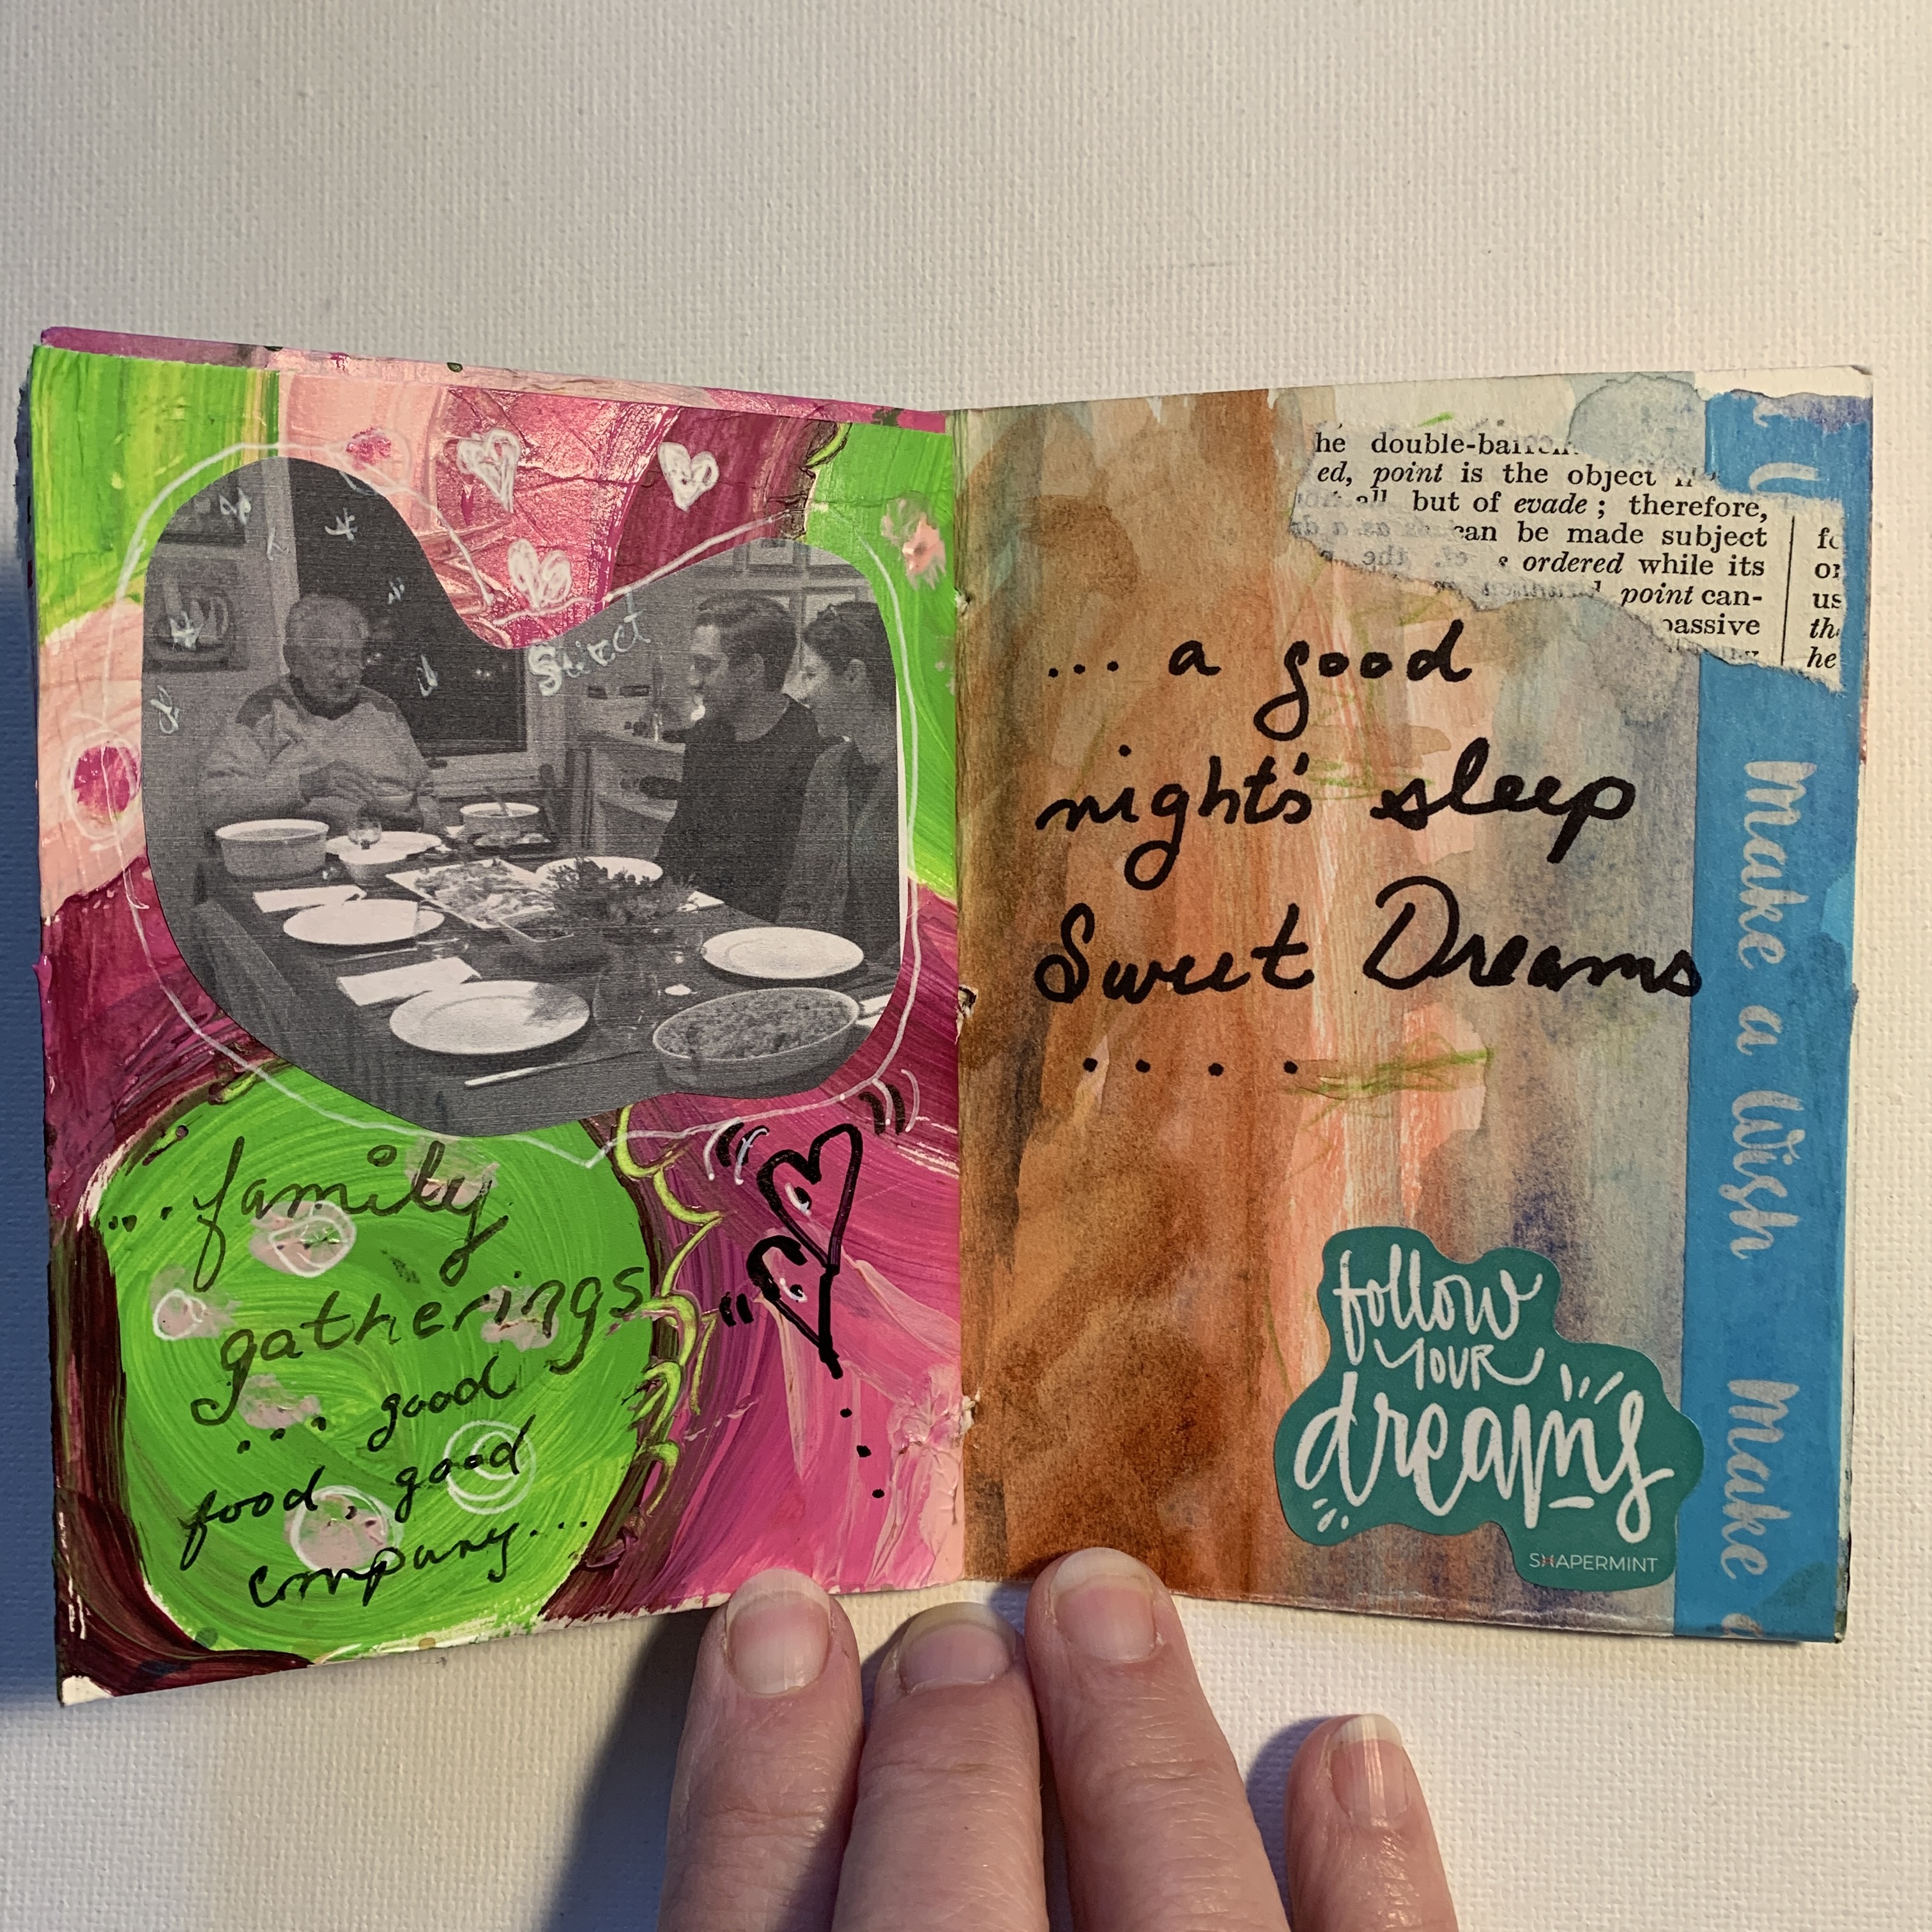 Sweet
...family
gatherings
... good
food, good
company...
he double-bar
ed, point is the object
all but of evade ; therefore,
can be made subject
ordered while its
point can-
passive
fo
or
us
the
he
... a good
night's sleep
Sweet Dreams
....
follow
YOUR
dreams
SHAPERMINT
Make a Wish Make a